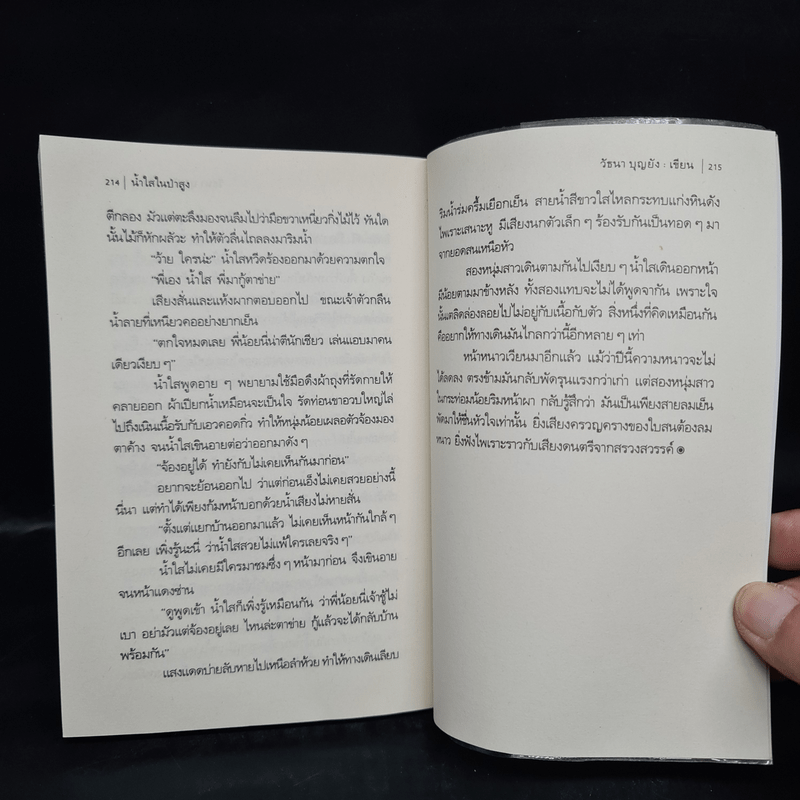 214 | น้ำใสในป่าสูง
ตีกลอง มัวแต่ตะลึงมองจนลืมไปว่ามือขวาเหนี่ยวกิ่งไม้ไว้ ทันใด
นั้นไม้ก็หักผลัวะ ทำให้ตัวลื่นไถลลงมาริมน้ำ
"ว้าย ใครน่ะ" น้ำใสหวีดร้องออกมาด้วยความตกใจ
"พี่เอง น้ำใส พี่มากู้ตาข่าย"
เสียงสั่นและแห้งผากตอบออกไป ขณะเจ้าตัวกลืน
น้ำลายที่เหนียวคออย่างยากเย็น
"ตกใจหมดเลย พี่น้อยนี่น่าตีนักเชียว เล่นแอบมาคน
เดียวเงียบ ๆ"
น้ำใสพูดอาย ๆ พยายามใช้มือดึงผ้าถุงที่รัดกายให้
คลายออก ผ้าเปียกน้ำเหมือนจะเป็นใจ รัดท่อนขาอวบใหญ่ไล่
ไปถึงเนินเนื้อรับกับเอวคอดกิ่ว ทำให้หนุ่มน้อยเผลอตัวจ้องมอง
ตาค้าง จนน้ำใสเขินอายต่อว่าออกมาดัง ๆ
"จ้องอยู่ได้ ทำยังกับไม่เคยเห็นกันมาก่อน"
อยากจะย้อนออกไป ว่าแต่ก่อนเอ็งไม่เคยสวยอย่างนี้
นี่นา แต่ทำได้เพียงก้มหน้าบอกด้วยน้ำเสียงไม่หายสั่น
"ตั้งแต่แยกบ้านออกมาแล้ว ไม่เคยเห็นหน้ากันใกล้ ๆ
อีกเลย เพิ่งรู้นะนี่ ว่าน้ำใสสวยไม่แพ้ใครเลยจริง ๆ"
น้ำใสไม่เคยมีใครมาชมซึ่ง ๆ หน้ามาก่อน จึงเขินอาย
จนหน้าแดงซ่าน
"ดูพูดเข้า น้ำใสก็เพิ่งรู้เหมือนกัน ว่าพี่น้อยนี่เจ้าชู้ไม่
เบา อย่ามัวแต่จ้องอยู่เลย ไหนล่ะตาข่าย กู้แล้วจะได้กลับบ้าน
พร้อมกัน"
แสงแดดบ่ายลับหายไปเหนือลำห้วย ทำให้ทางเดินเลียบ
วัธนา บุญยัง : เขียน | 215
ริมน้ำร่มครึ้มเยือกเย็น สายน้ำสีขาวใสไหลกระทบแก่งหินดัง
ไพเราะเสนาะหู มีเสียงนกตัวเล็ก ๆ ร้องรับกันเป็นทอด ๆ มา
จากยอดสนเหนือหัว
สองหนุ่มสาวเดินตามกันไปเงียบ ๆ น้ำใสเดินออกหน้า
มีน้อยตามมาข้างหลัง ทั้งสองแทบจะไม่ได้พูดจากัน เพราะใจ
นั้นเตลิดล่องลอยไปไม่อยู่กับเนื้อกับตัว สิ่งหนึ่งที่คิดเหมือนกัน
คืออยากให้ทางเดินมันไกลกว่านี้อีกหลาย ๆ เท่า
หน้าหนาวเวียนมาอีกแล้ว แม้ว่าปีนี้ความหนาวจะไม่
ได้ลดลง ตรงข้ามมันกลับพัดรุนแรงกว่าเก่า แต่สองหนุ่มสาว
ในกระท่อมน้อยริมหน้าผา กลับรู้สึกว่า มันเป็นเพียงสายลมเย็น
พัดมาให้ชื่นหัวใจเท่านั้น ยิ่งเสียงครวญครางของใบสนต้องลม
หนาว ยิ่งฟังไพเราะราวกับเสียงดนตรีจากสรวงสวรรค์ ๏